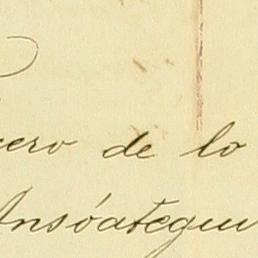 cero de lo
Ansóategui